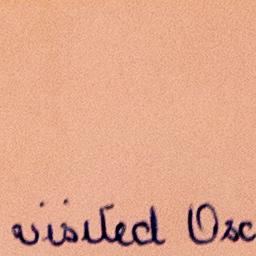 visited Osc